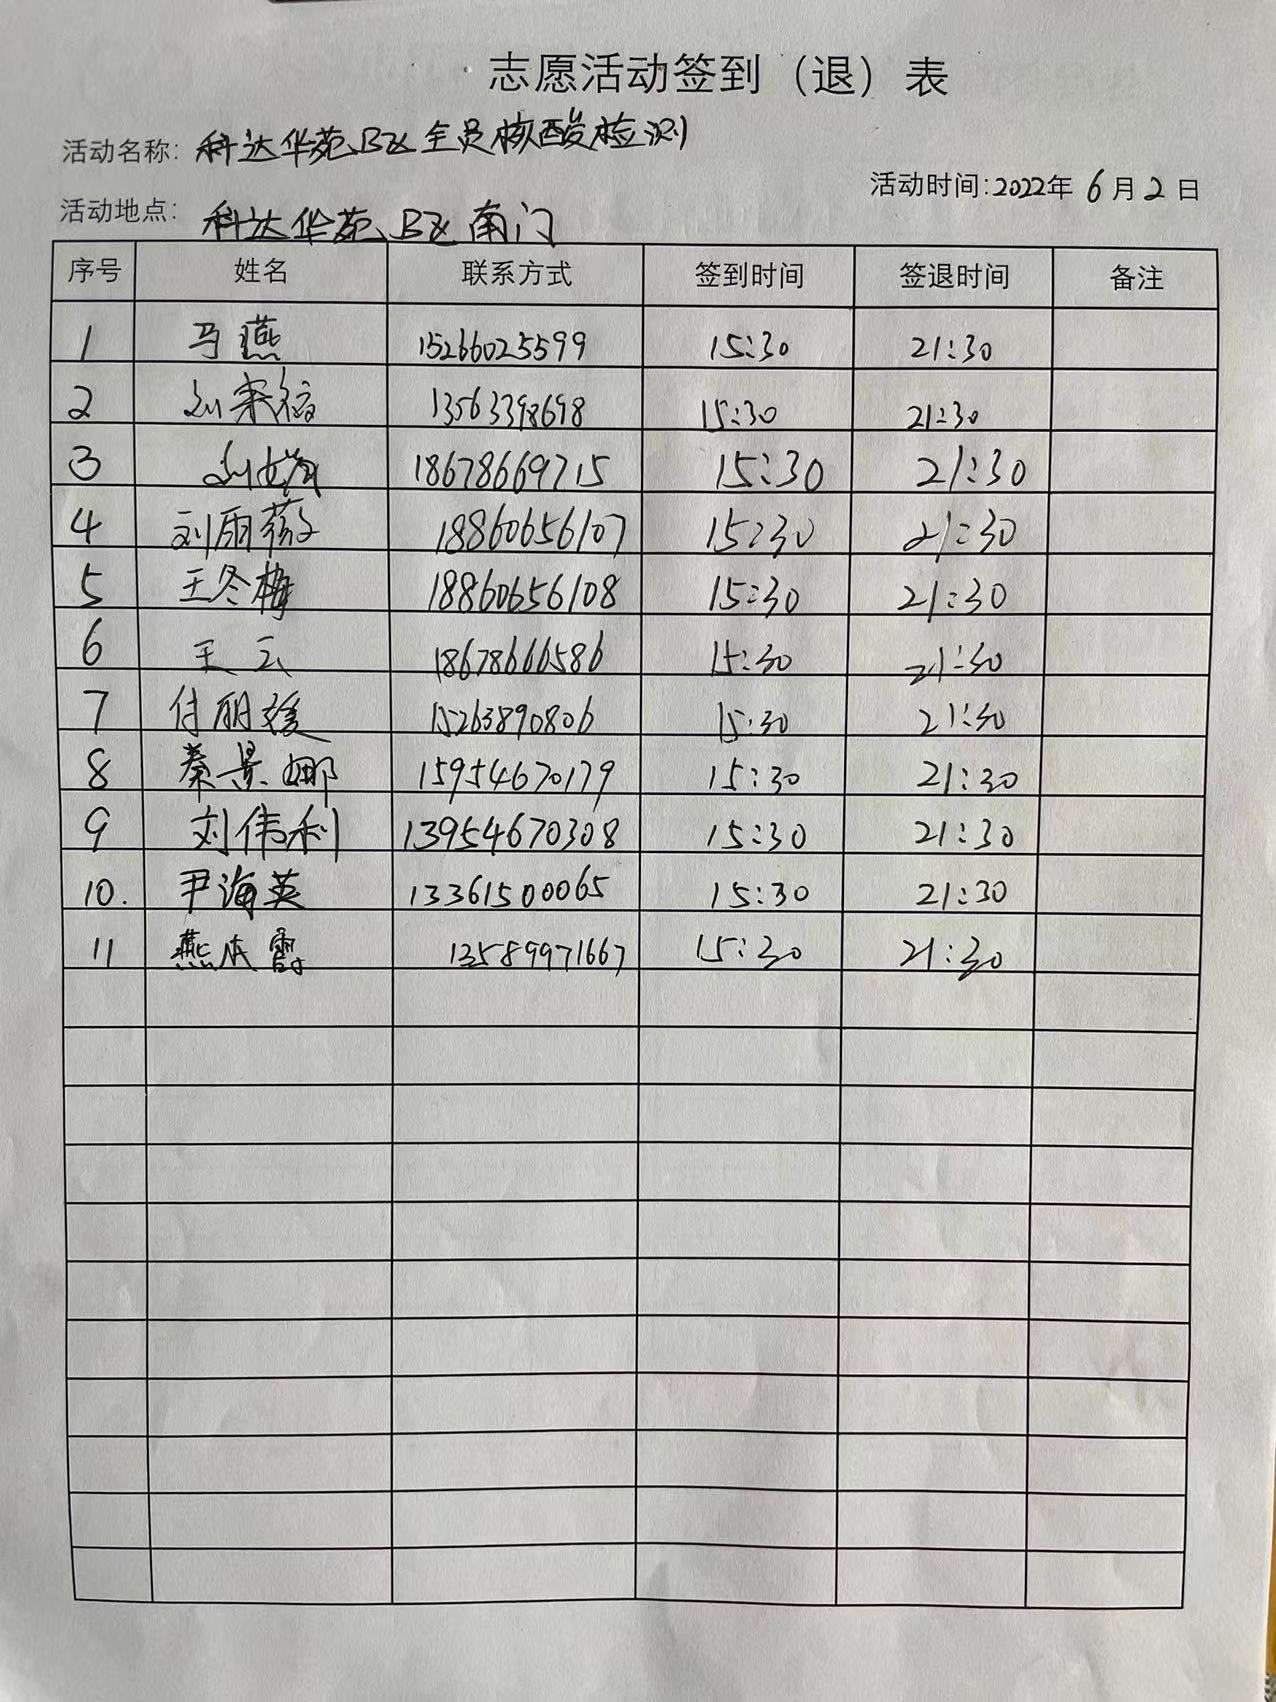 志愿活动签到（退）表
活动名称：科达华苑B区全员核酸检测
活动时间：2022年6月2日
活动地点：科达华苑B区南门
序号 姓名 联系方式 签到时间 签退时间 备注
1 马燕 15266025599 15:30 21:30
2 刘荣 13563398698 15:30 21:30
3 刘 18678669715 15:30 21:30
4 刘雨薇 18860656107 15:30 21:30
5 王冬梅 18860656108 15:30 21:30
6 王云 18678666586 15:30 21:30
7 付丽媛 15263890806 15:30 21:30
8 秦景娜 15954670179 15:30 21:30
9 刘伟利 13954670308 15:30 21:30
10. 尹海英 13361500065 15:30 21:30
11 燕本霞 13589971667 15:30 21:30